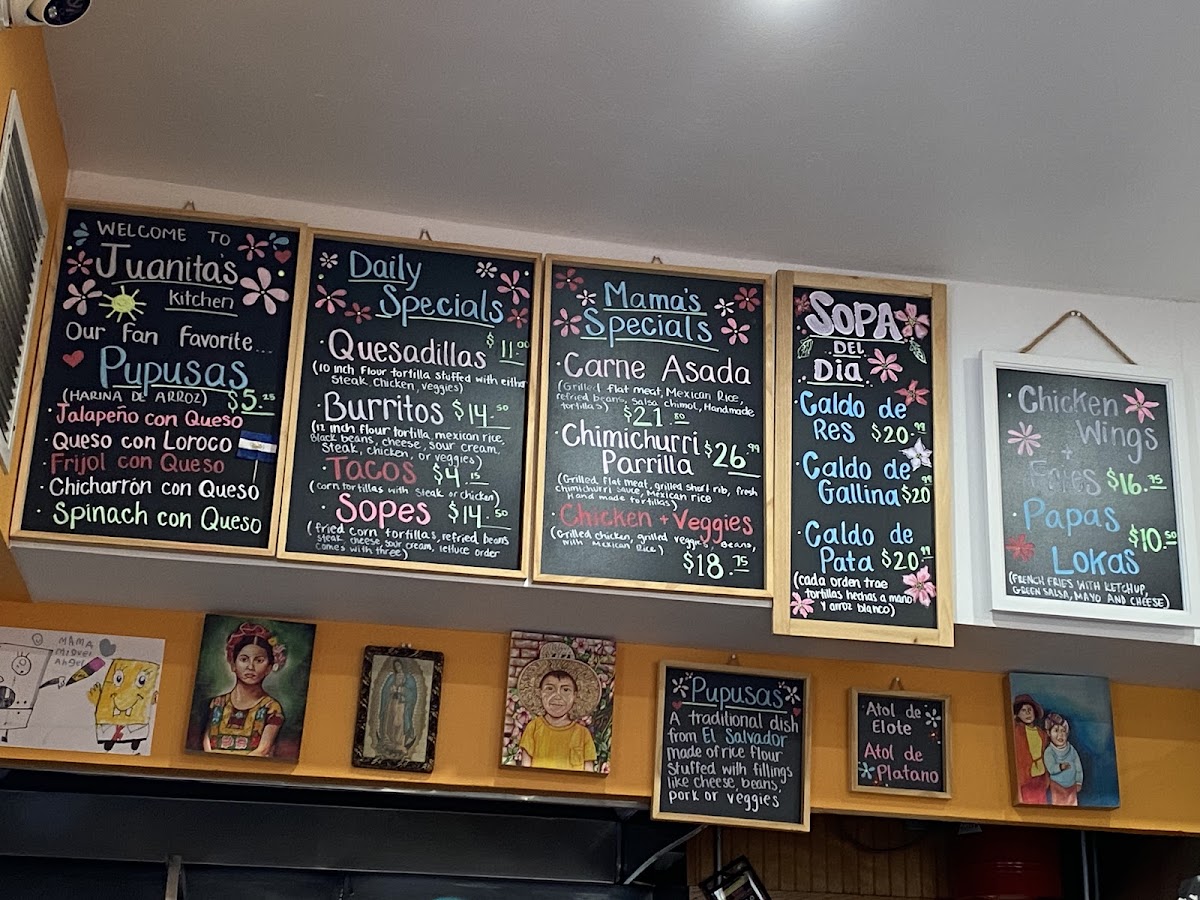 WELCOME TO
Juanita's
Kitchen
Our Fan Favorite...
Pupusas
(HARINA DE ARROZ) $5.25
· Jalapeño con Queso
· Queso con Loroco
· Frijol con Queso
· Chicharrón con Queso
· Spinach con Queso
Daily
Specials
· Quesadillas $11.00
(10 inch flour tortilla stuffed with either
Steak, Chicken, veggies)
· Burritos $14.50
(12 inch flour tortilla, mexican rice,
Black beans, cheese, sour cream,
Steak, chicken, or veggies)
· Tacos $4.15
(corn tortillas with steak or chicken)
· Sopes $14.50
(fried corn tortillas, refried beans
steak, cheese, sour cream, lettuce order
comes with three)
Mama's
Specials
· Carne Asada
(Grilled flat meat, Mexican Rice,
refried beans, salsa chimol, Handmade
tortillas) $21.50
· Chimichurri
Parrilla $26.99
(Grilled, flat meat, grilled short rib, fresh
Chimichurri sauce, Mexican rice
Hand made tortillas)
· Chicken + Veggies
(Grilled chicken, grilled veggies, Beans,
with Mexican Rice)
$18.75
SOPA
DEL
Dia
· Caldo de
Res $20.99
· Caldo de
Gallina $20.99
· Caldo de
Pata $20.99
(cada orden trae
tortillas hechas a mano
y arroz blanco)
· Chicken
Wings
+
Fries $16.75
· Papas
Lokas $10.50
(FRENCH FRIES WITH KETCHUP,
GREEN SALSA, MAYO AND CHEESE)
MAMA
Miguel
Angel
Pupusas
A traditional dish
from El Salvador
made of rice flour
Stuffed with fillings
like cheese, beans,
pork or veggies
Atol de
Elote
Atol de
Platano